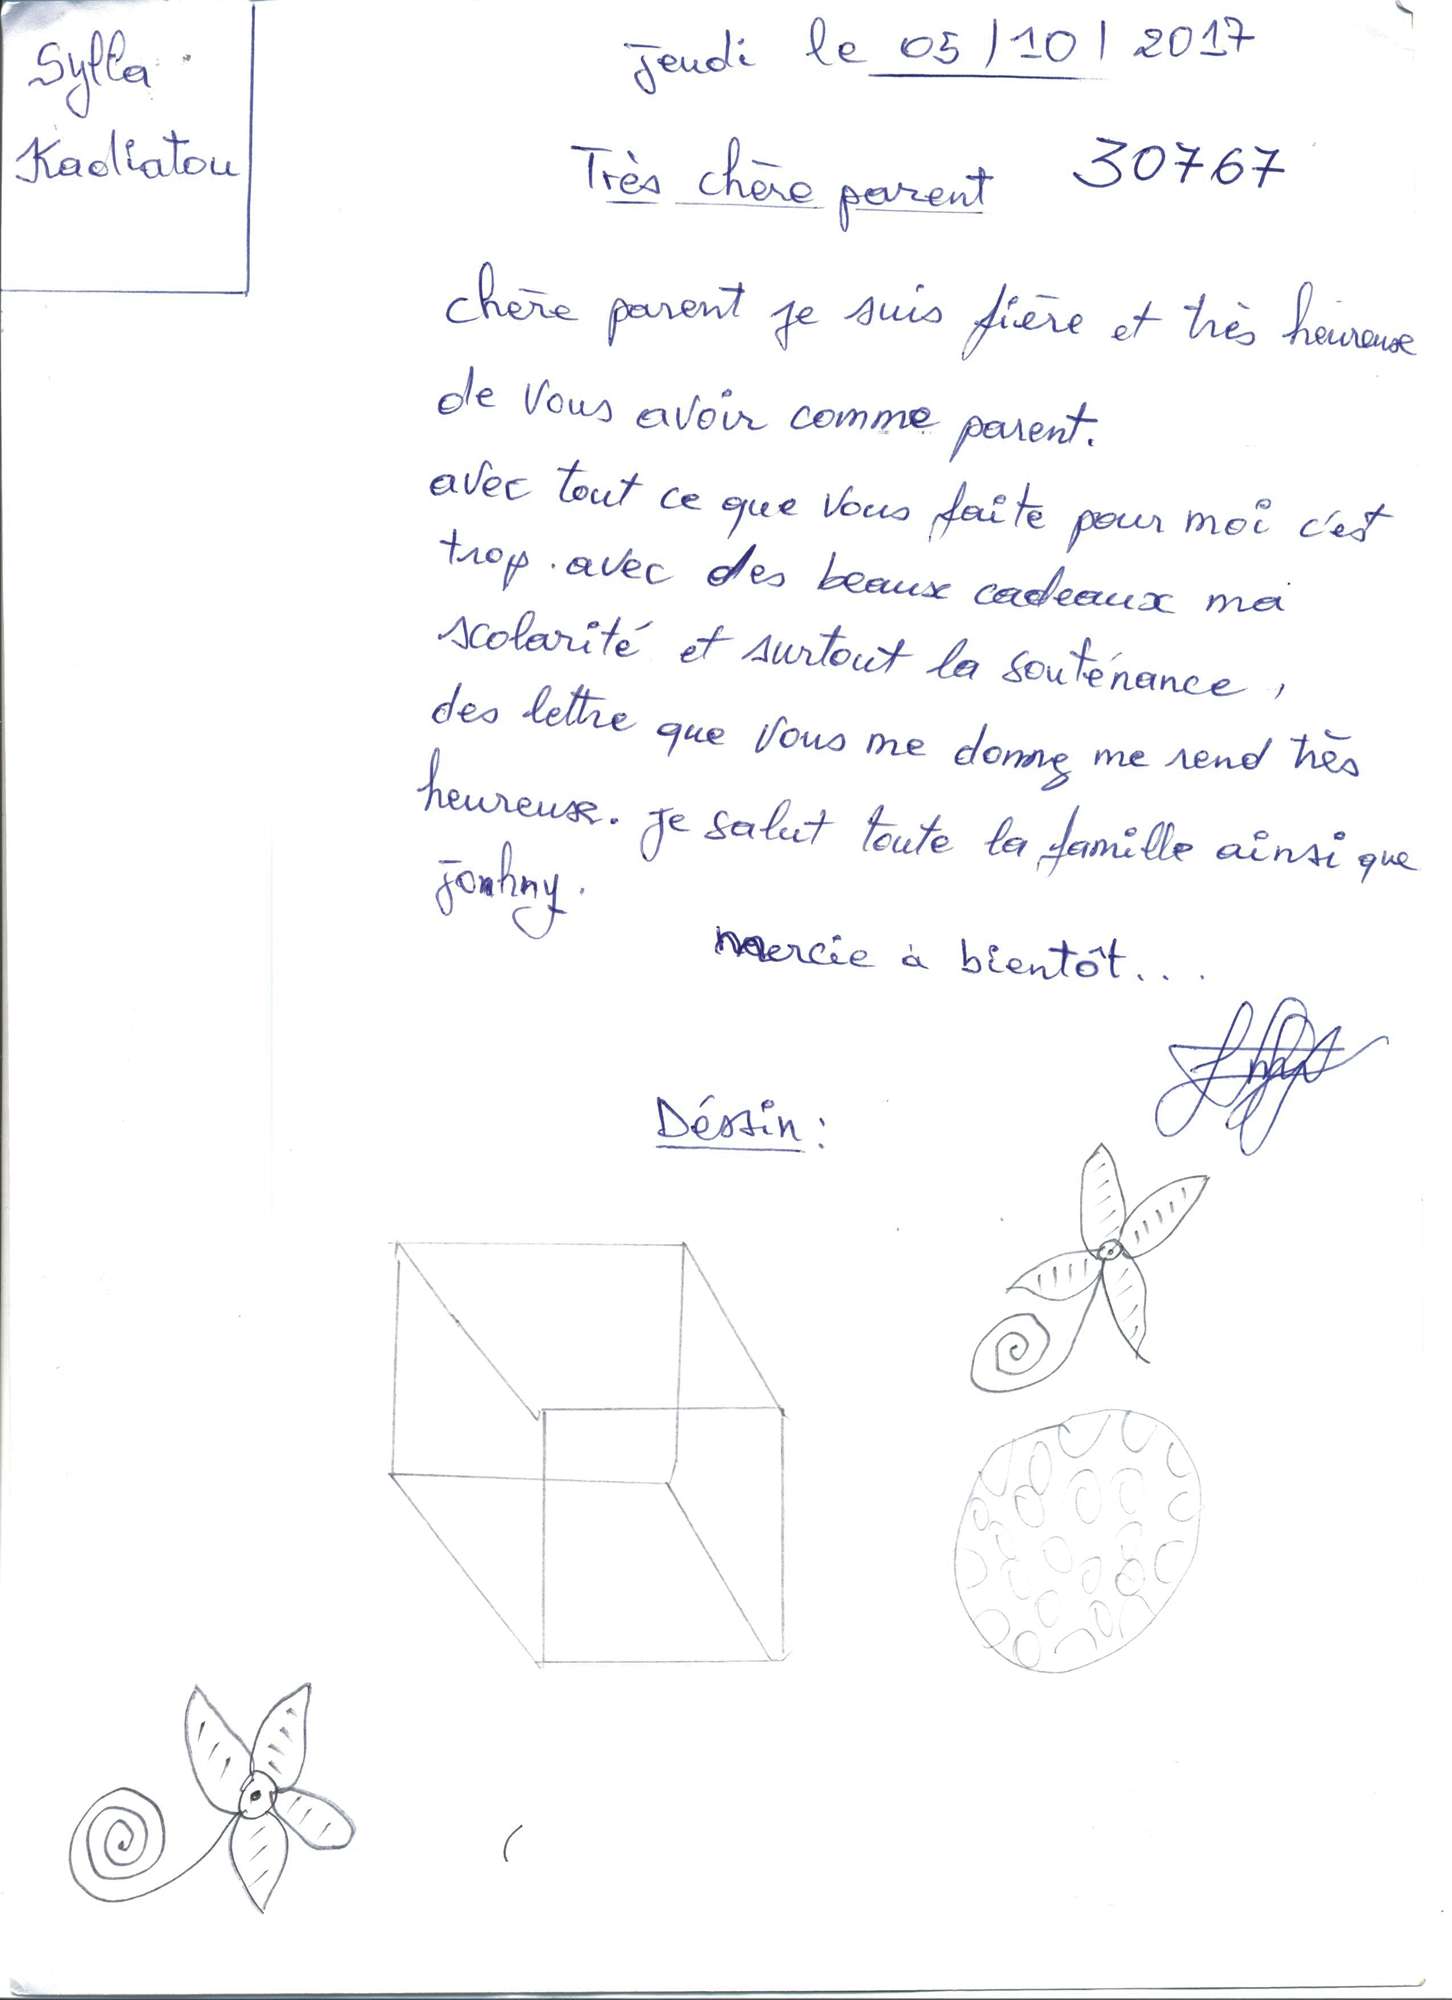 Sylla
Kadiatou
jeudi le 05/10/2017
Très chère parent 30767
chère parent je suis fière et très heureuse
de vous avoir comme parent.
avec tout ce que vous faite pour moi c'est
trop. avec des beaux cadeaux ma
scolarité et surtout la souténance,
des lettre que vous me donnez me rend très
heureuse. je salut toute la famille ainsi que
jonhny.
mercie à bientôt...
Déssin: